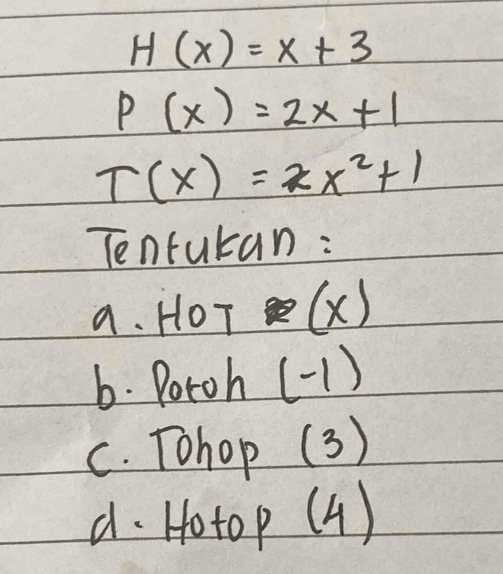 H(x) = x + 3
P(x) = 2x + 1
T(x) = x² + 1
Tentukan :
a. HOT (x)
b. Potoh (-1)
c. Tohop (3)
d. Hotop (4)